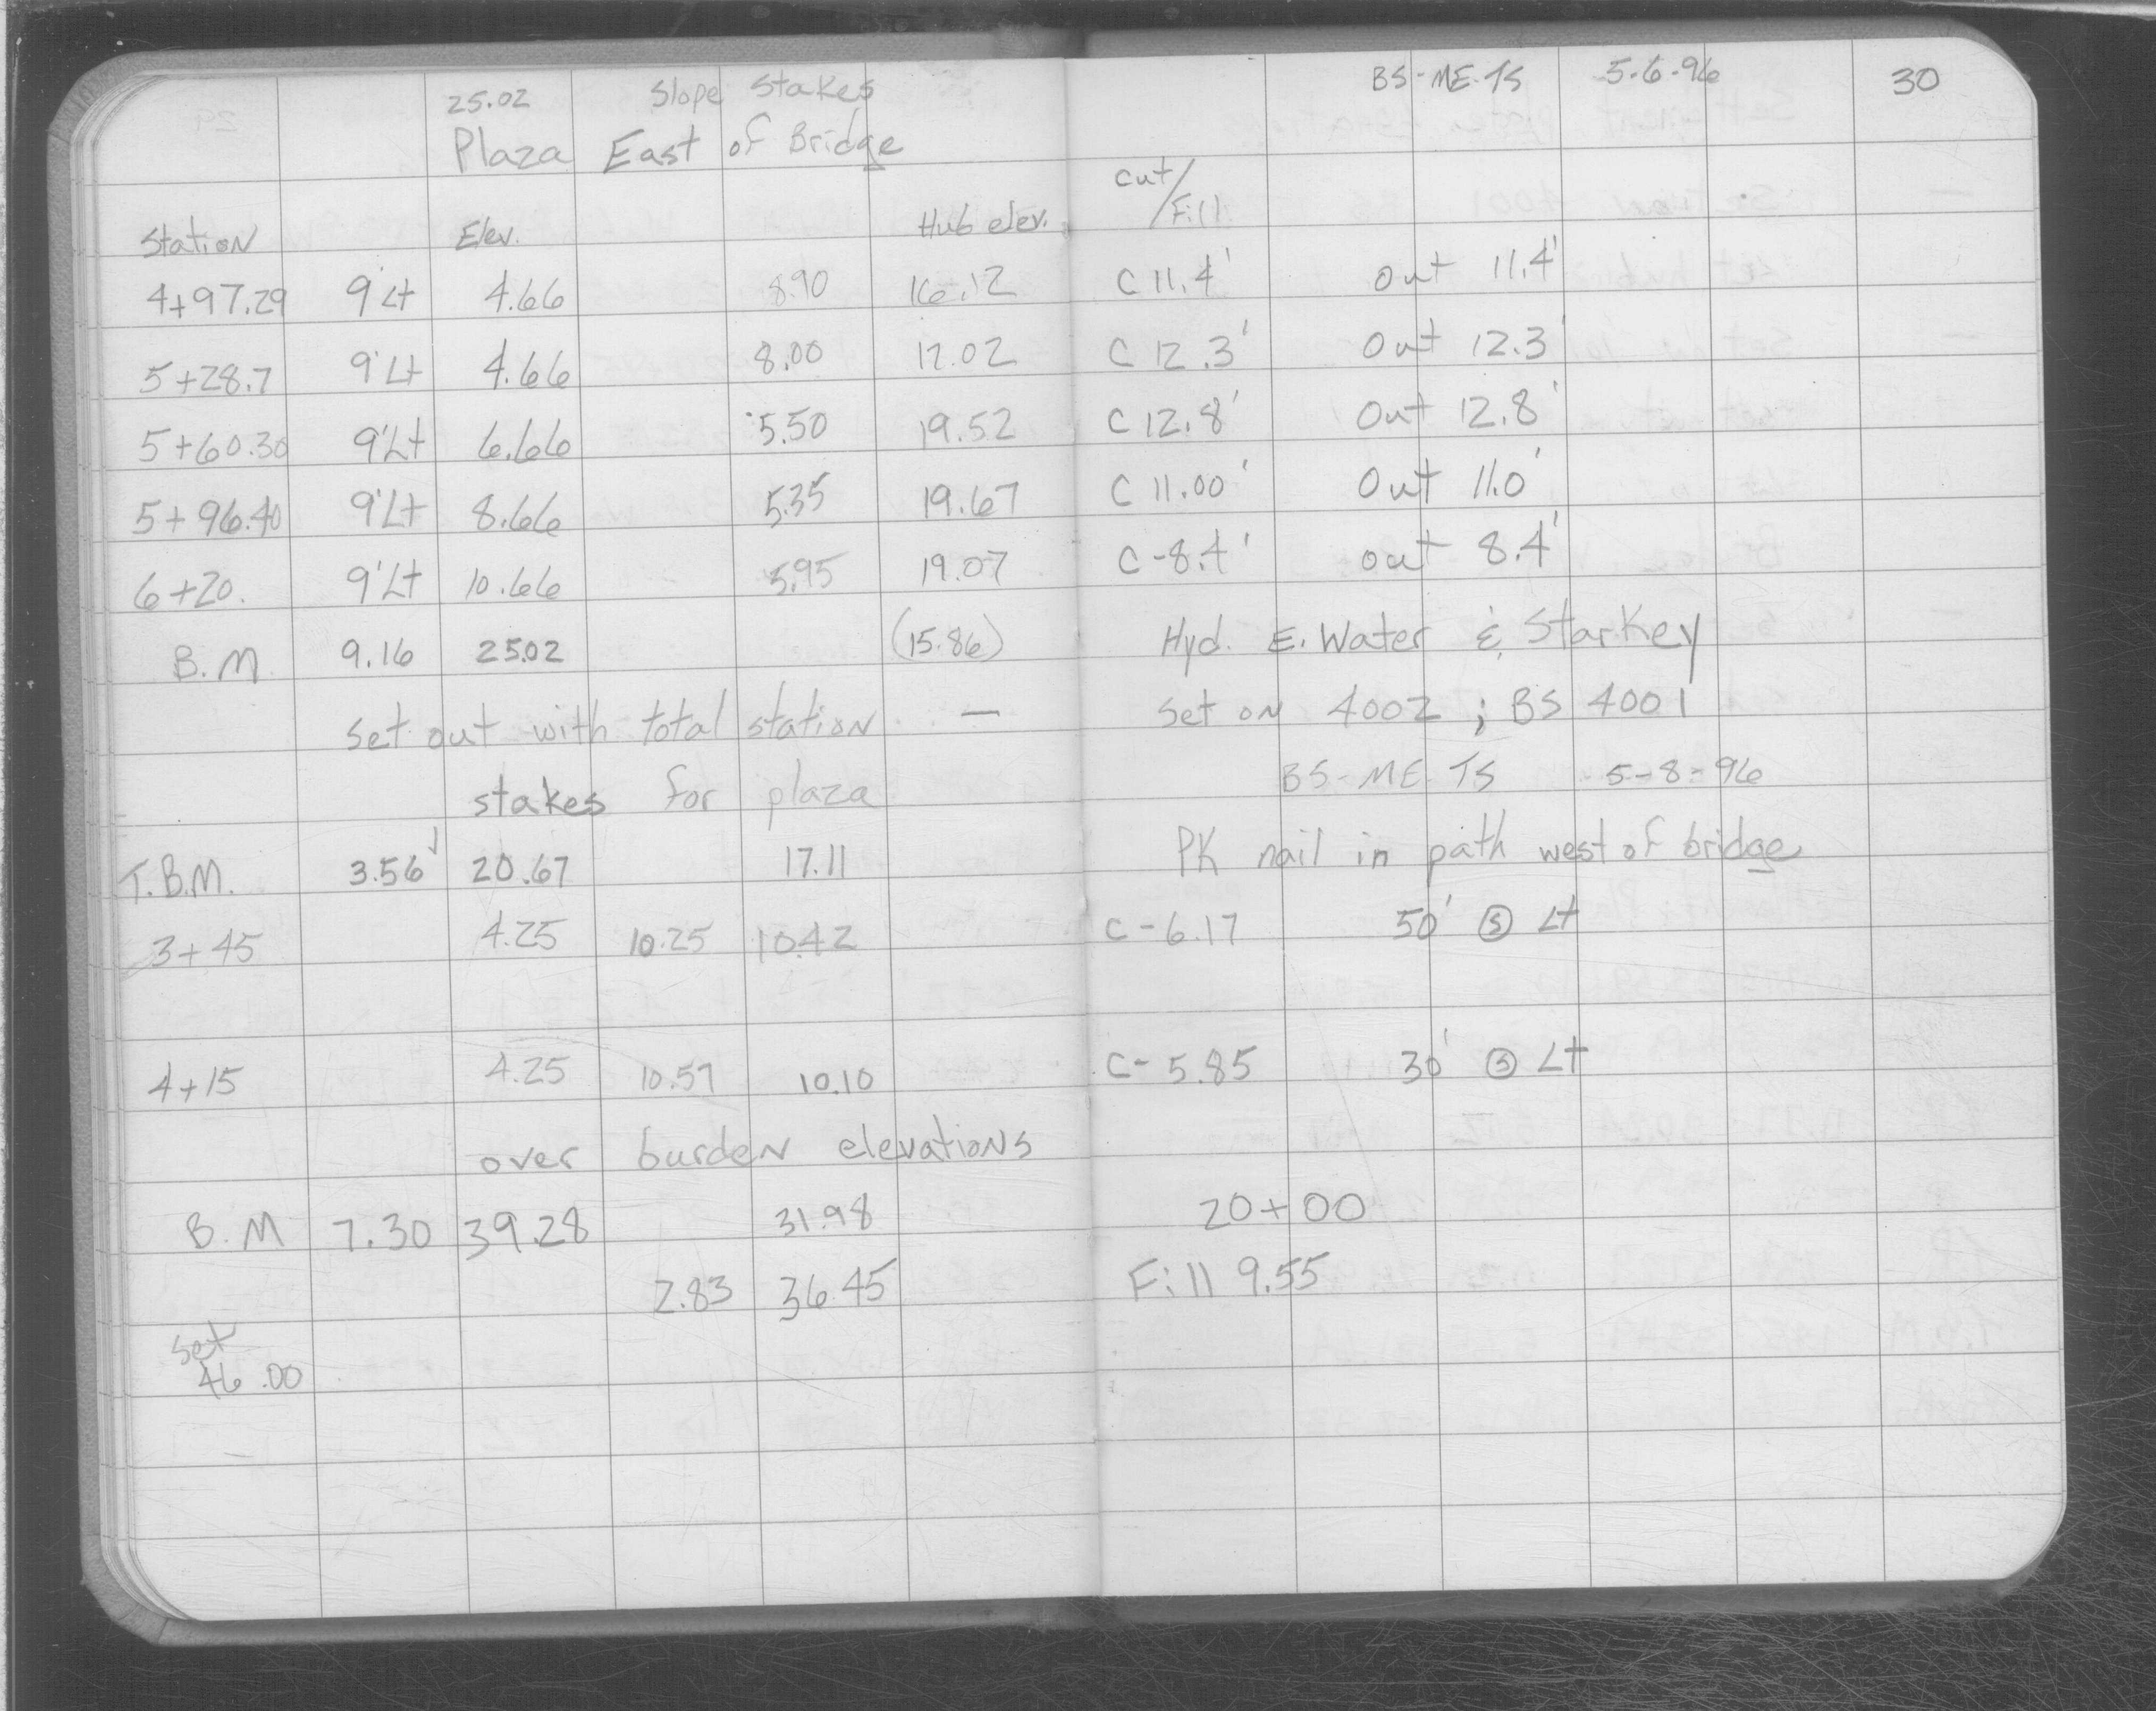 25.02 Slope Stakes BS-ME-TS 5-6-96 30
Plaza East of Bridge
Station Elev. Hub elev. cut/Fill
4+97.29 9'Lt 4.66 8.90 16.12 C 11.4' Out 11.4'
5+28.7 9'Lt 4.66 8.00 17.02 C 12.3' Out 12.3'
5+60.30 9'Lt 6.66 5.50 19.52 C 12.8' Out 12.8'
5+96.40 9'Lt 8.66 5.35 19.67 C 11.00' Out 11.0'
6+20. 9'Lt 10.66 5.95 19.07 C-8.4' out 8.4'
B.M 9.16 25.02 (15.86) Hyd. E. Water & Starkey
Set out with total station — Set on 4002 ; BS 4001
stakes for plaza BS-ME-TS 5-8-96
T.B.M. 3.56 20.67 17.11 PK nail in path west of bridge
3+45 4.25 10.25 10.42 C-6.17 50' Ⓢ Lt
4+15 4.25 10.57 10.10 C-5.85 30' Ⓢ Lt
over burden elevations
B.M 7.30 39.28 31.98 20+00
2.83 36.45 Fill 9.55
Set
46.00